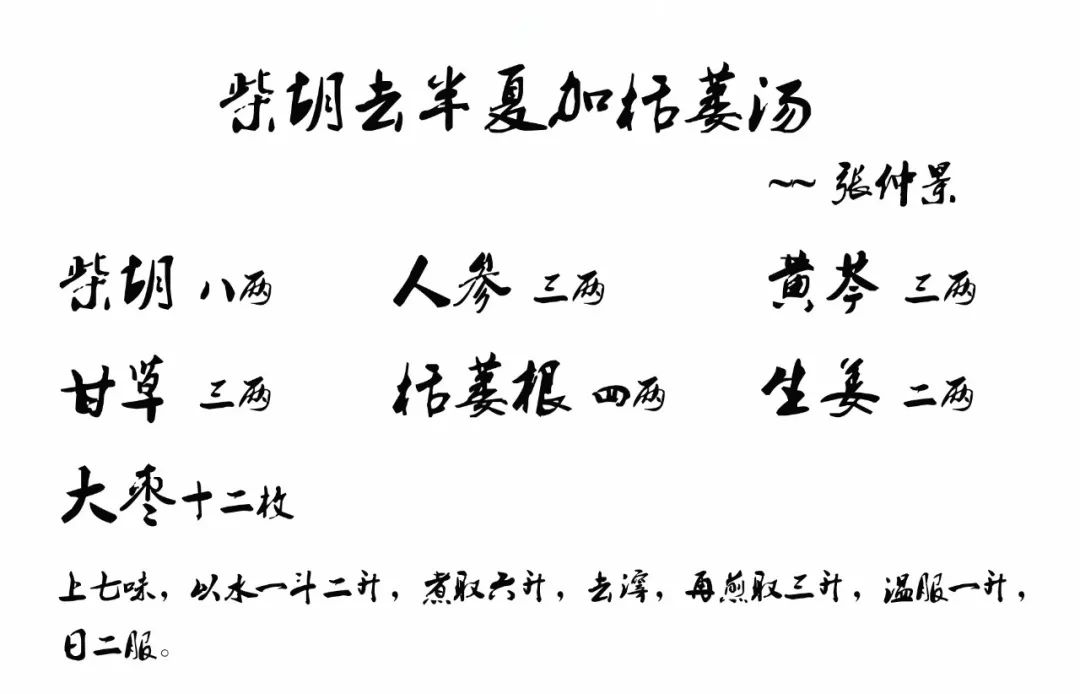 柴胡去半夏加栝蒌汤
~~ 张仲景
柴胡 八两 人参 三两 黄芩 三两
甘草 三两 栝蒌根 四两 生姜 二两
大枣十二枚
上七味，以水一斗二升，煮取六升，去滓，再煎取三升，温服一升，
日二服。